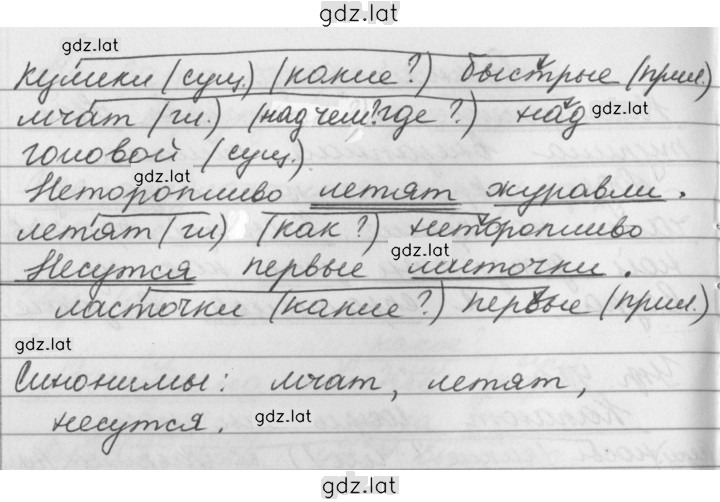 gdz.lat
gdz.lat
кулики (сущ.) (какие?) быстрые (прил.)
мчат (гл.) (над чем? где?) над gdz.lat
головой (сущ.)
gdz.lat
Неторопливо летят журавли.
летят (гл) (как?) неторопливо
gdz.lat
Несутся первые ласточки.
ласточки (какие?) первые (прил.)
gdz.lat
Синонимы: мчат, летят,
несутся. gdz.lat
gdz.lat